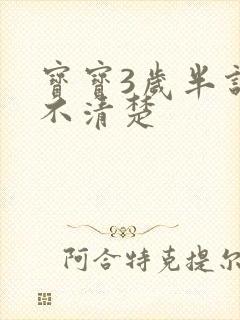 寶寶3歲半
不清楚
阿合特克提尔